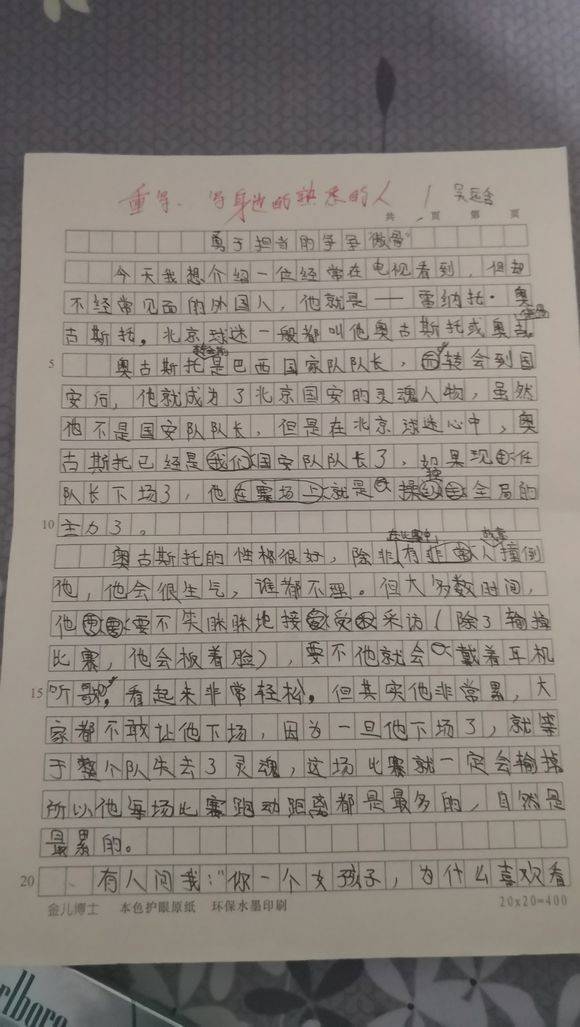 重写、写身边的熟悉的人
共 页 第 页
勇于担当的
今天我想介绍一位经常在电视看到，但却
不经常见面的外国人，他就是——雷纳托·奥
古斯托。北京球迷一般都叫他奥古斯托或奥
5 奥古斯托是巴西国家队队长，转会到国
安后，他就成为了北京国安的灵魂人物，虽然
他不是国安队队长，但是在北京球迷心中，奥
古斯托已经是我们国安队队长了，如果现任
队长下场了，他在赛场上就是操全局的
10 主力了。
奥古斯托的性格很好，除非有人撞倒
他，他会很生气，谁都不理。但大多数时间，
他要不笑眯眯地接受采访（除了输掉
比赛，他会板着脸），要不他就会戴着耳机
15 听歌，看起来非常轻松。但其实他非常累，大
家都不敢让他下场，因为一旦他下场了，就等
于整个队失去了灵魂，这场比赛就一定会输掉
所以他每场比赛跑动距离都是最多的，自然是
最累的。
20 有人问我："你一个女孩子，为什么喜欢看
金儿博士 本色护眼原纸 环保水墨印刷 20x20=400
Marlboro